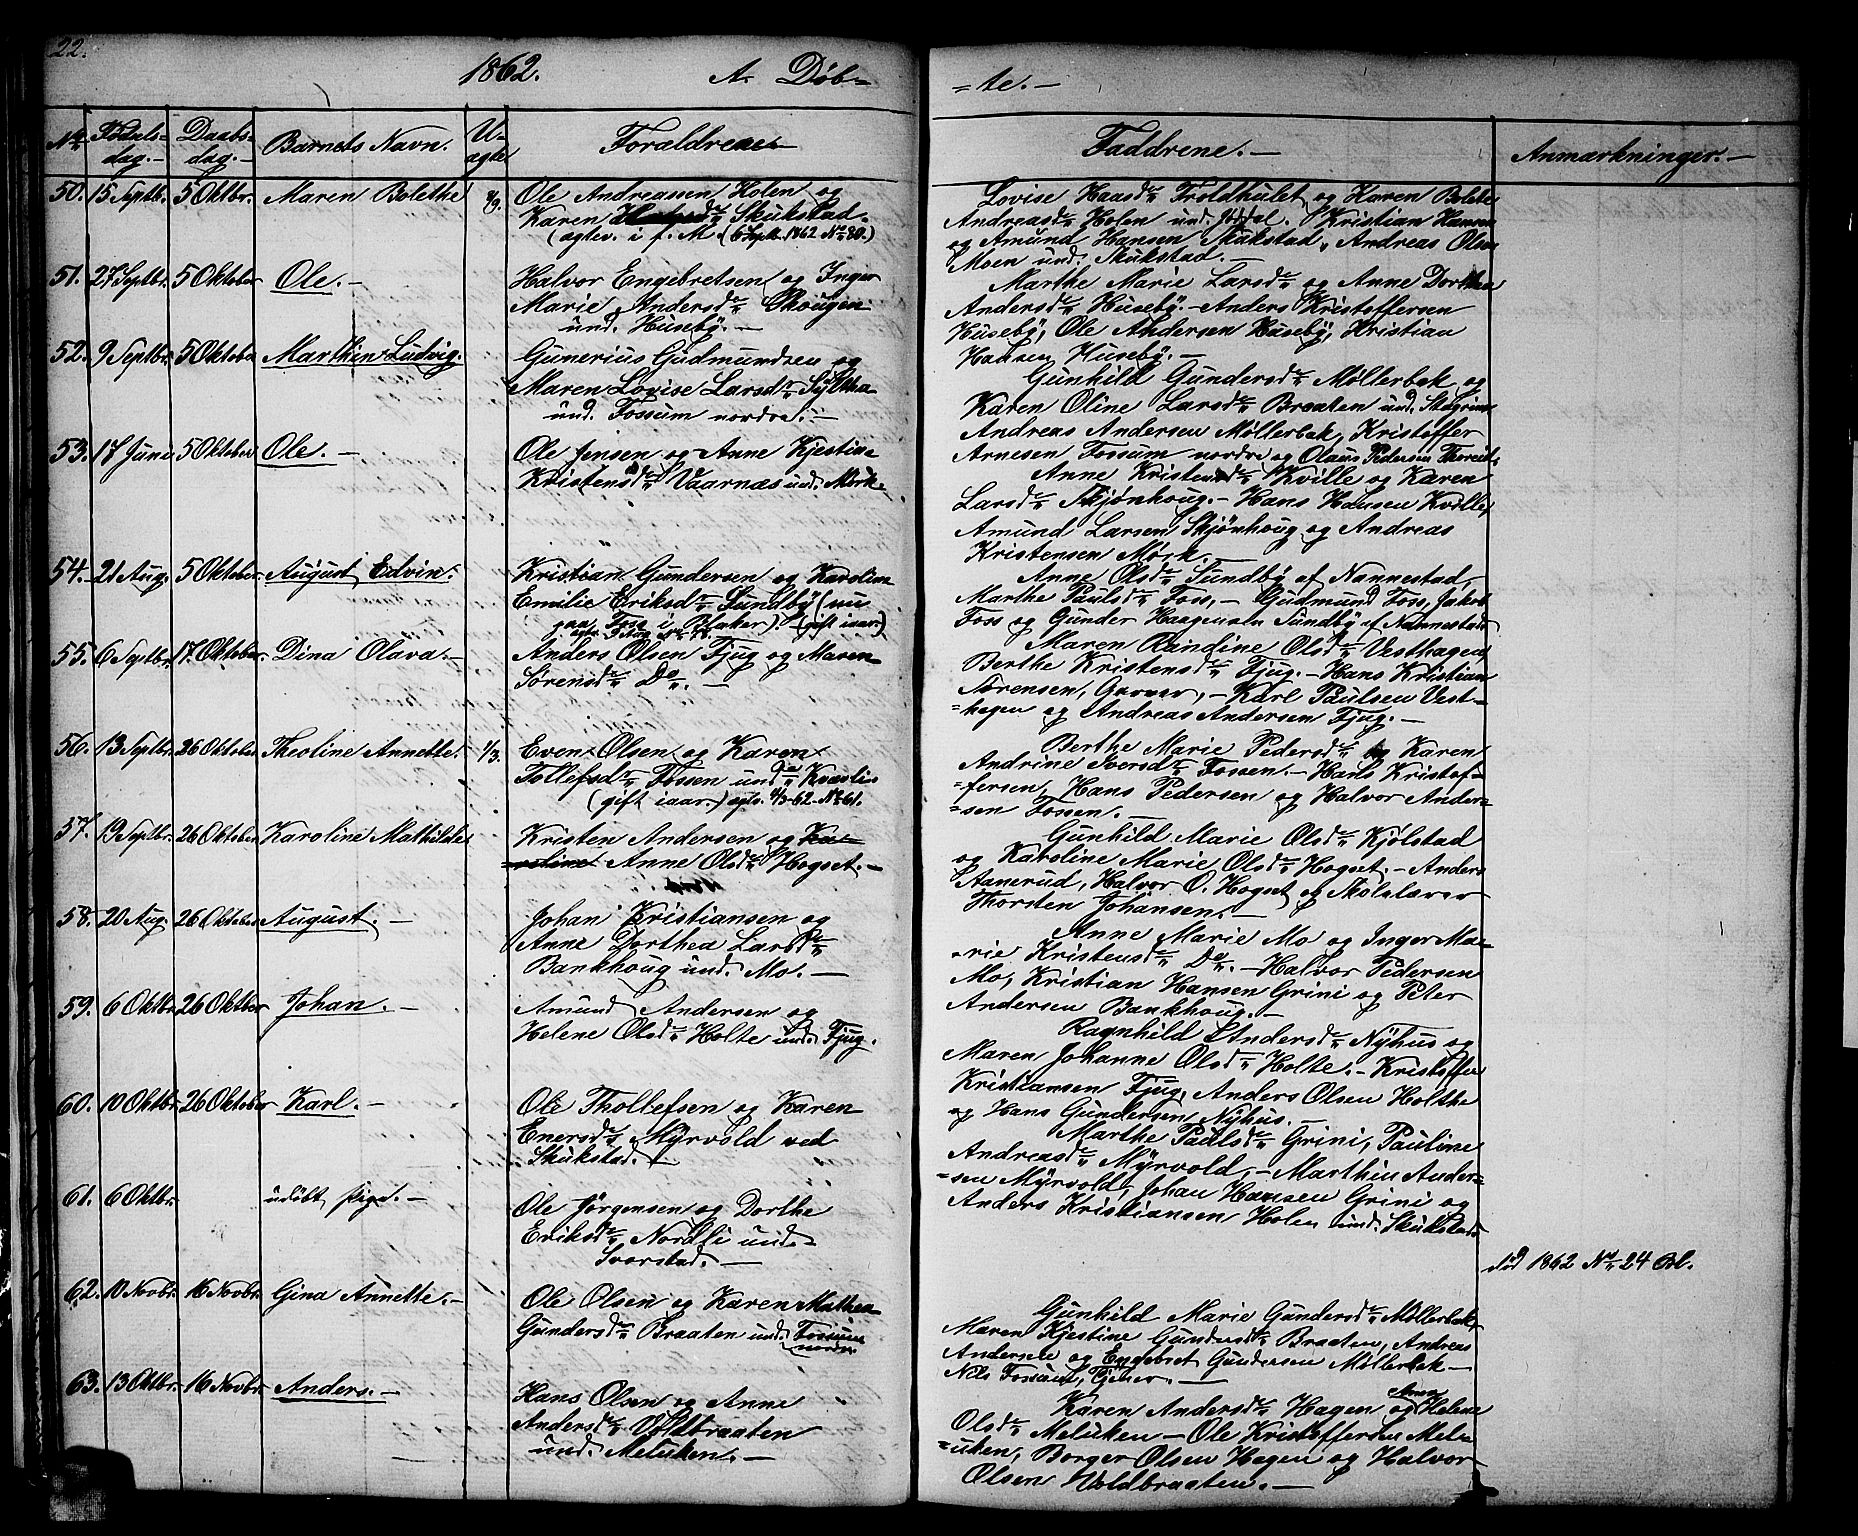 22.
1862.
A. Döb-
=te.-
No
Födsels-
dag.-
Daabs-
dag.-
Barnets Navn.
U-
ægte
Forældrene.
Faddrene.-
Anmærkninger.-
50. 15 Septbr. 5 Oktbr. Maren Bolethe
Ole Andreassen Holen og
Karen Skukstad.
(ægtev. i f. M. (6 Septb. 1862 No 80.)
Lovise Haasdr Troldhulet og Karen Bolette
Andreasdr Holen und. Kristian Hansen
og Amund Hansen Skukstad, Andreas Olsen
Moen und. Skukstad.-
51. 27 Septbr. 5 Oktober Ole.-
Halvor Engebretsen og Inger
Marie Andersdr Skougen
und. Husebÿ.-
Marthe Marie Larsdr og Anne Dorthea
Andersdr Husebÿ.- Anders Kristoffersen
Husebÿ, Ole Andersen Husebÿ, Kristian
Hansen Husebÿ.-
52. 9 Septbr. 5 Oktober Marthin Ludvig.
Gunerius Gudmundsen og
Maren Lovise Larsdr
und. Fossum nordre.-
Gunhild Gundersdr Møllerbæk og
Karen Oline Larsdr Braaten und.
Andreas Andersen Møllerbæk, Kristoffer
Arnesen Fossum nordre og Olaus Pedersen
53. 17 Juni 5 Oktober Ole.-
Ole Jensen og Anne Kjestine
Kristensdr Vaarnæs und. Mørk.
Anne Kristensdr Kville og Karen
Larsdr Skjønhoug.- Hans Hansen Kville,
Amund Larsen Skjønhoug og Andreas
Kristensen Mørk.-
54. 21 Aug. 5 Oktober August Edvin.
Kristian Gundersen og Karoline
Emilie Eriksdr Sundbÿ (nu
paa Foss i Blaker). (gift iaar.)
Anne Olsdr Sundbÿ af Nannestad,
Marthe Paulsdr Foss,- Gudmund Foss, Jakob
Foss og Gunder Haagensen Sundbÿ af Nannestad.
55. 6 Septbr. 17. Oktober. Dina Olava.-
Anders Olsen Fjug og Maren
Sørensdr Do.-
Maren Randine Olsdr Vesthagen,
Berthe Kristensdr Fjug.- Hans Kristian
Sørensen, - Karl Paulsen Vest-
=hagen og Andreas Andersen Fjug.-
56. 13 Septbr. 26 Oktober. Theoline Annette. 1/3.
Even Olsen og Karen
Tollefsdr Fossen und.
(gift iaar.) ægtv. 4/3-62- No 61.
Berthe Marie Pedersdr og Karen
Andrine Iversdr Fossen.- Hans Kristof-
=fersen, Hans Pedersen og Halvor Ander-
=sen Fossen.-
57. 19 Septbr. 26 Oktober Karoline Mathilde.
Kristen Andersen og Ka-
roline Anne Olsdr Hogset.-
Gunhild Marie Olsdr Kjölstad
og Karoline Marie Olsdr Hogset.- Anders
Aanerud, Halvor O. Hogset og Skolelærer
Thorsten Johansen.-
58. 20 Aug. 26 Oktober August.-
Johan Kristiansen og
Anne Dorthea Larsdr
Bankhoug und. Mo.-
Anne Marie Mo og Inger Ma-
=rie Kristensdr Do.- Halvor Pedersen
Mo, Kristian Hansen Grini og Peter
Andersen Bankhoug.-
59. 6 Oktbr. 26 Oktber Johan.-
Amund Andersen og
Helene Olsdr Holte und. Fjug.
Ragnhild Andersdr Nÿhus og
Maren Johanne Olsdr Holte.- Kristoffer
Kristiansen Fjug, Anders Olsen Holthe
og Hans Gundersen Nÿhus.-
60. 10 Oktbr. 26 Oktober Karl.-
Ole Thollefsen og Karen
Enersdr Mÿrvold ved
Skukstad.
Marthe Paulsdr Grini, Pauline
Andreasdr Mÿrvold,- Marthin Ander-
=sen Mÿrvold, Johan Hansen Grini og
Anders Kristiansen Holen und. Skukstad.
61. 6 Oktbr. udöbt Pige.-
Ole Jörgensen og Dorthe
Eriksdr Nordli und.
Svarstad.-
död 1862 No 24
62. 10 Novbr. 16 Novbr. Gina Annette.-
Ole Olsen og Karen Mathea
Gundersdr Braaten und. Fossum
nordre
Gunhild Marie Gundersdr Møllerbæk,
Maren Kjestine Gundersdr Braaten, Andreas
Andersen og Engebret Gundersen Møllerbæk-
Nils Fossum, Tjener.-
63. 13 Oktbr. 16 Novbr. Anders.-
Hans Olsen og Anne
Andersdr Voldbraaten
und. Meluken.-
Karen Andersdr Hagen og Helene
Olsdr Meluken- Ole Kristoffersen Mel-
=uken, Borger Olsen Hagen og Halvor
Olsen Woldbraaten.-